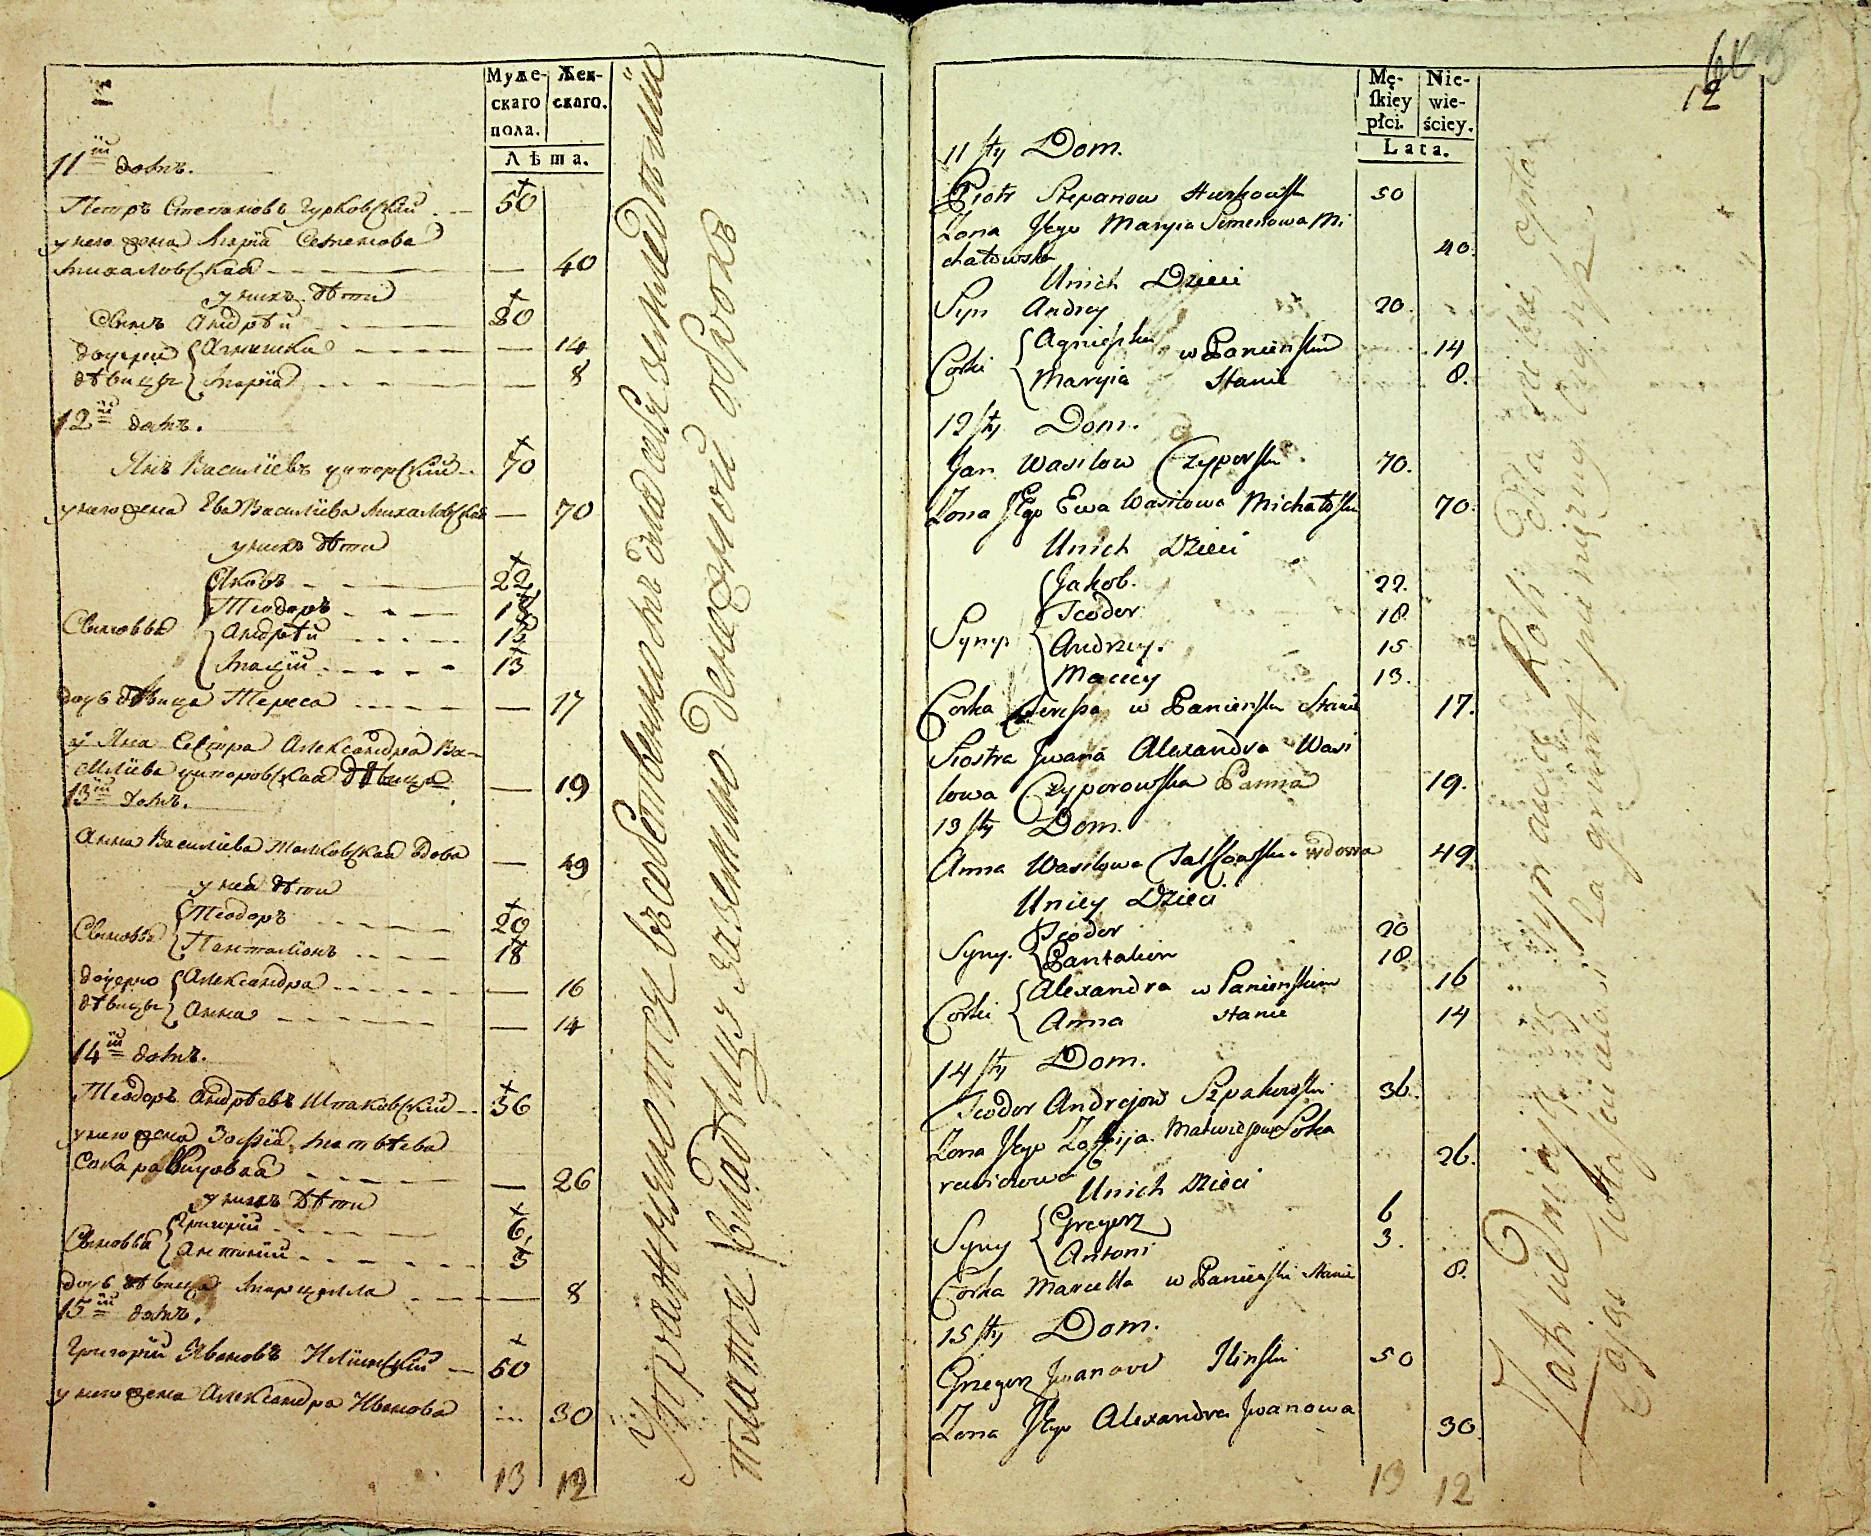 Муже-
скаго
пола.
Жен-
скаго.
Лѣта.
11й домъ.
Петръ Степановъ Гурковскій 50
у него жена Марія Семенова
Михаловская 40
у нихъ дѣти
Сынъ Андрѣй 20
дочери Агнешка 14
дѣвицы Марія 8
12й домъ.
Янъ Василіевъ Ципорскій 70
у него жена Ева Василіева Михаловская 70
у нихъ дѣти
Яковъ 22
Теодоръ 18
Сыновья Андрѣй 15
Мацѣй 13
дочь дѣвица Тереса 17
у Яна Сестра Александра Ва-
силіева Ципоровская дѣвица 19
13й домъ.
Анна Василіева Талковская вдова 49
у неи дѣти
Теодоръ 20
Сыновья Панталіонъ 18
дочерю Александра 16
дѣвицы Анна 14
14й домъ.
Теодоръ Андрѣевъ Шпаковскій 36
у него жена Зофія Матвѣева
Сокаровичовна 26
у нихъ дѣти
Григорій 6
Сыновья Антоній 3
дочь дѣвица Марцелла 8
15й домъ.
Григорій Яновъ Илинскій 50
у него жена Александра Иванова 30
13 12
Упражняются въ собственномъ для себя земледѣліи
платя владѣлцу за землю денежной оброкъ
Mę-
ſkiey
płci.
Nie-
wie-
ściey.
Lata.
12
11sty Dom.
Piotr Stepanow Hurkowski 50
Zona Jego Maryia Simenowa Mi
chałowska 40
Unich Dzieci
Syn Andrey 20
Corki Agnieszka w Panienskim 14
Maryia Stanie 8.
12sty Dom.
Jan Wasilow Czyporski 70.
Zona Jego Ewa Wasilowa Michałoska 70.
Unich Dzieci
Jakob. 22.
Teodor 18
Syny Andrzey. 15
Maciey 13.
Corka Teressa w Panienskim Stanie 17.
Siostra Jwana Alexandra Wasi
lowa Czyporowska Panna 19.
13sty Dom.
Anna Wasilowa Talkowska wdowa 49
Uniey Dzieci
Teodor 20
Syny. Pantalion 18
Corki Alexandra w Panienskim 16
Anna stanie 14
14sty Dom.
Teodor Andrejow Szpakowski 36.
Zona Jego Zofija Matwiejowa Soka
rewiczowa 26.
Unich Dzieci
Syny Gregorz 6
Antoni 3.
Corka Marcella w Panienski Stanie 8.
15sty Dom.
Grzegorz Jwanow Ilinski 50
Zona Jego Alexandra Jwanowa 30
13 12
Roli dla siebie
za grunt pieniężny czynsz